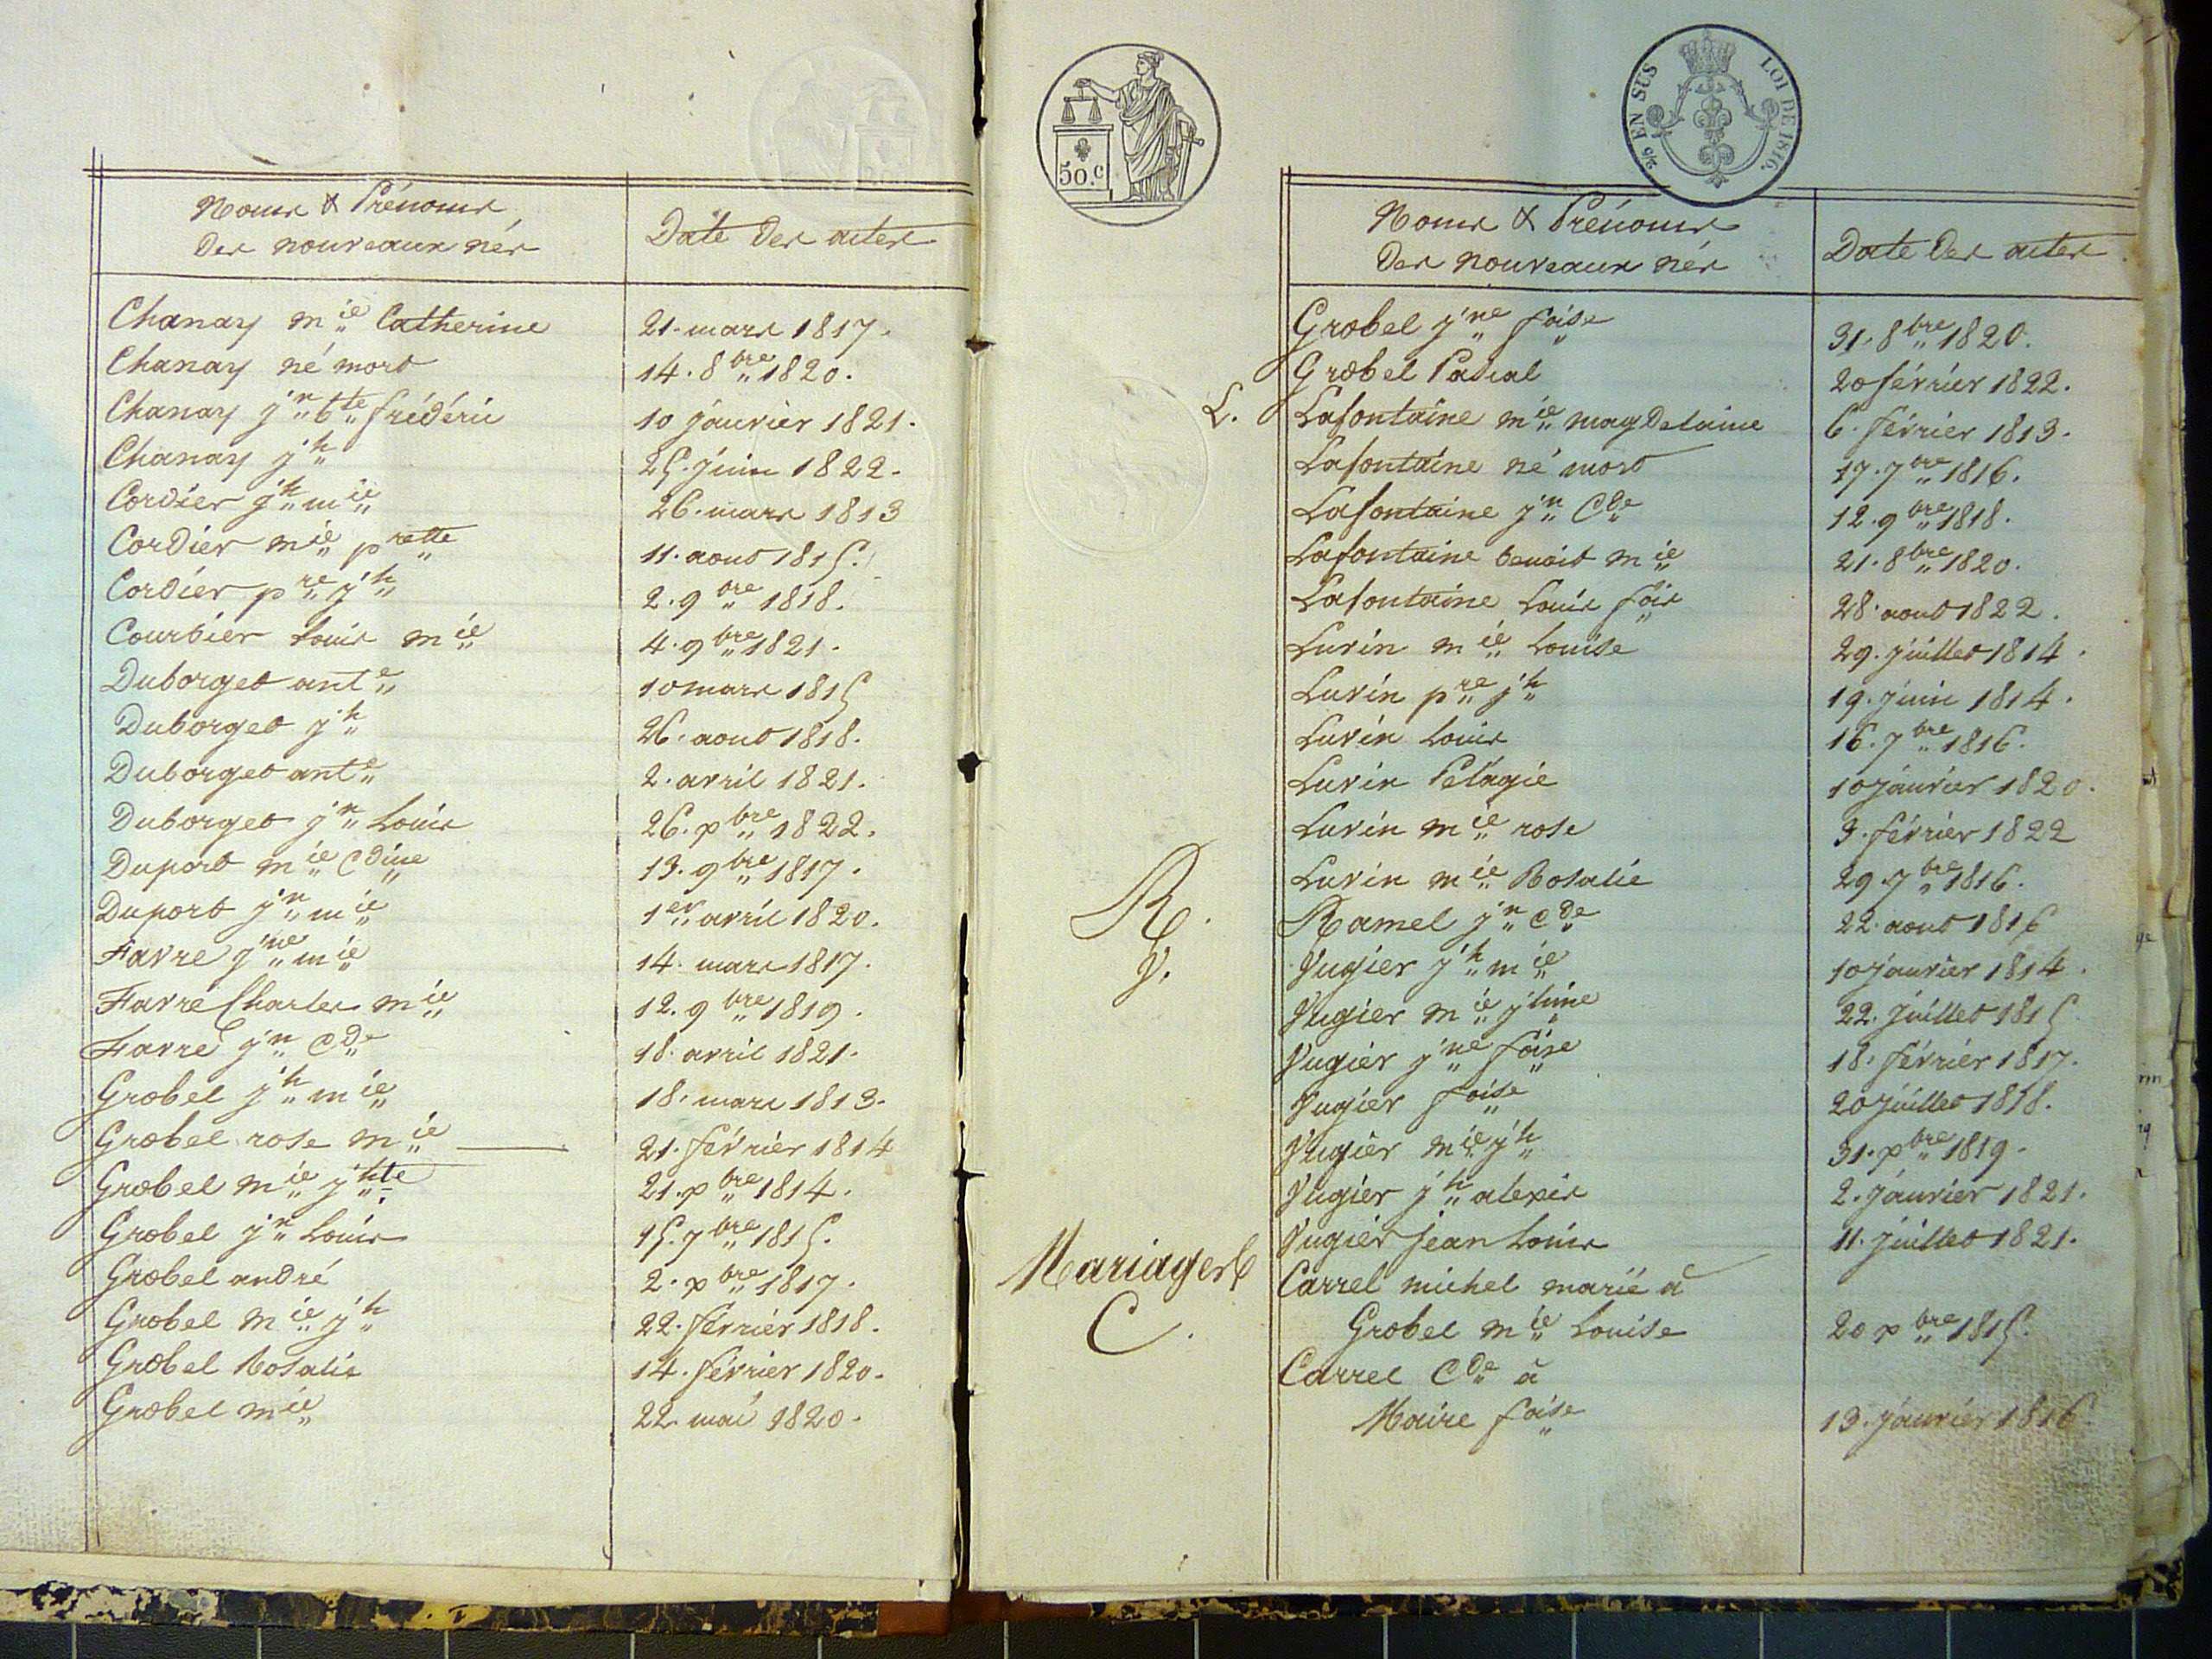 Noms & Prénoms
Des nouveaux nés
Date des actes
Chanay mie Catherine 21. mars 1817.
Chanay né mort 14. 8bre 1820.
Chanay jn bte frédéric 10 janvier 1821.
Chanay jh 25. juin 1822.
Cordier jh mie 26. mars 1813
Cordier mie prette 11. aout 1815.
Cordier pre jh 2. 9bre 1818.
Courbier Louis mie 4. 9bre 1821.
Duborget ante 10 mars 1815
Duborget jh 26. aout 1818.
Duborget ante 2. avril 1821.
Duborget jn Louis 26. xbre 1822.
Duport mie Cdine 13. 9bre 1817.
Duport jn mie 1er avril 1820.
Favre jne mie 14. mars 1817.
Favre Charles mie 12. 9bre 1819.
Favre jn Cde 18. avril 1821.
Grobel jh mie 18. mars 1813.
Grobel rose mie 21. février 1814
Grobel mie jhte 21. xbre 1814.
Grobel jn Louis 15. 7bre 1815.
Grobel andré 2. xbre 1817.
Grobel mie jh 22. février 1818.
Grobel Rosalie 14. février 1820.
Grobel mie 22 mai 1820.
50.c
EN SUS LOI DE 1816.
Noms & Prénoms
Des nouveaux nés
Date des actes
Grobel jne foise 31. 8bre 1820.
Grobel Pascal 20 février 1822.
L. Lafontaine mie magdelaine 6. février 1813.
Lafontaine né mort 17. 7bre 1816.
Lafontaine jn Cde 12. 9bre 1818.
Lafontaine benoit mie 21. 8bre 1820.
Lafontaine Louis fois 28. aout 1822.
Luvin mie Louise 29. juillet 1814.
Luvin pre jh 19. juin 1814.
Luvin Louis 16. 7bre 1816.
Luvin Pélagie 10 janvier 1820.
Luvin mie rose 3. février 1822
Luvin mie Rosalie 29. 7bre 1816.
R. Ramel jn Cde 22. aout 1816
V. Vugier jh mie 10 janvier 1814.
Vugier mie jhine 22. juillet 1815
Vugier jne foise 18. février 1817.
Vugier foise 20 juillet 1818.
Vugier mie jh 31. xbre 1819.
Vugier jh alexis 2. janvier 1821.
Vugier jean Louis 11. juillet 1821.
Mariages
C. Carrel michel marié à
Grobel mie Louise 20 xbre 1815.
Carrel Cde à
Maire foise 13. janvier 1816